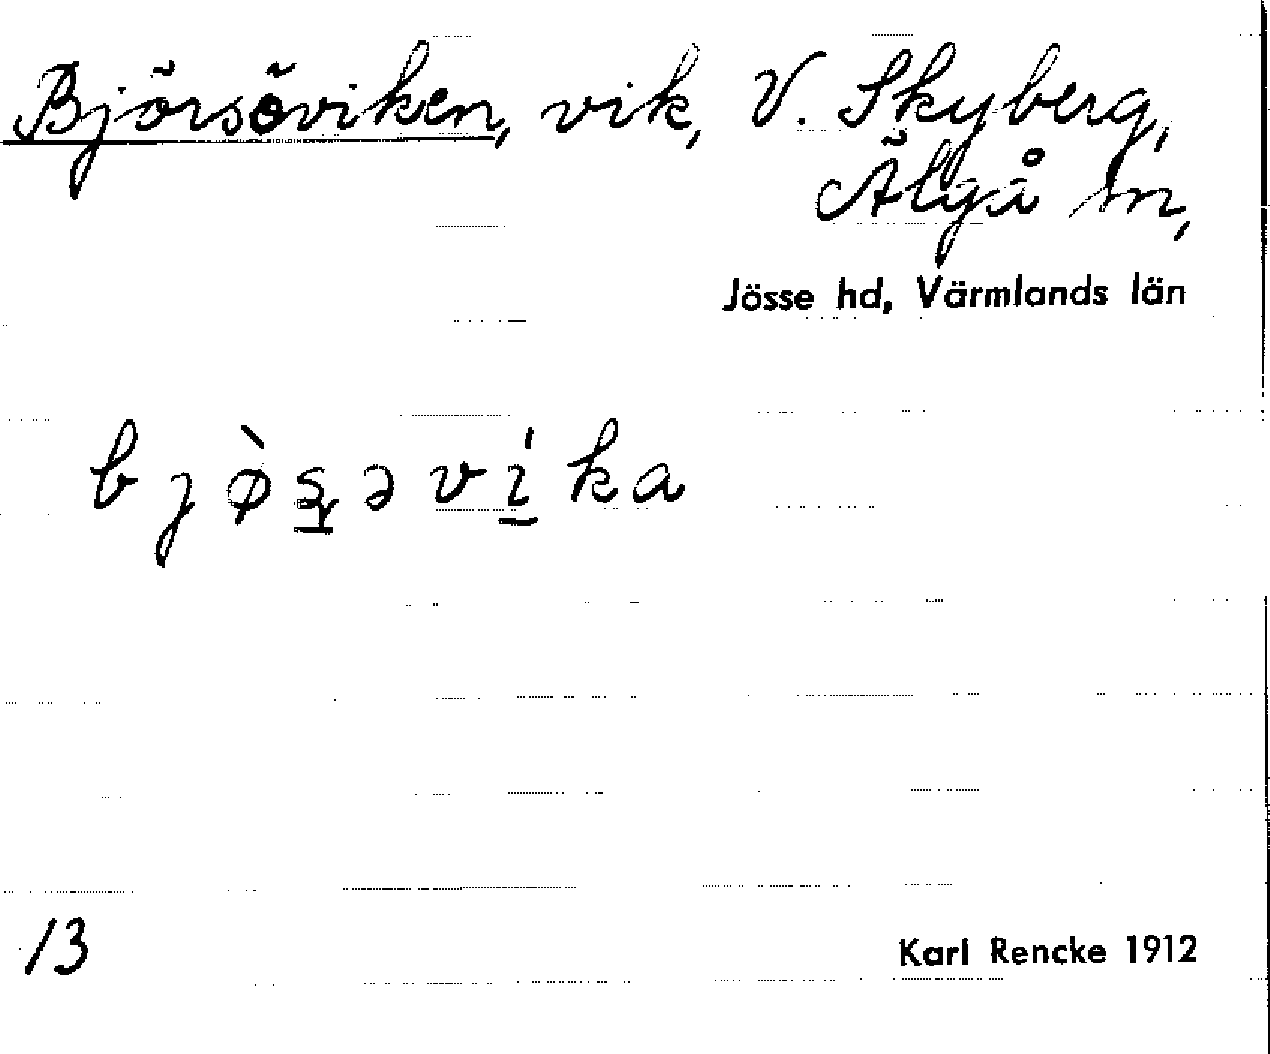 Björsöviken, vik, V. Skyberg,
Älgå sn,
Jösse hd, Värmlands län
bjø̀ʂəvíka
13
Karl Rencke 1912